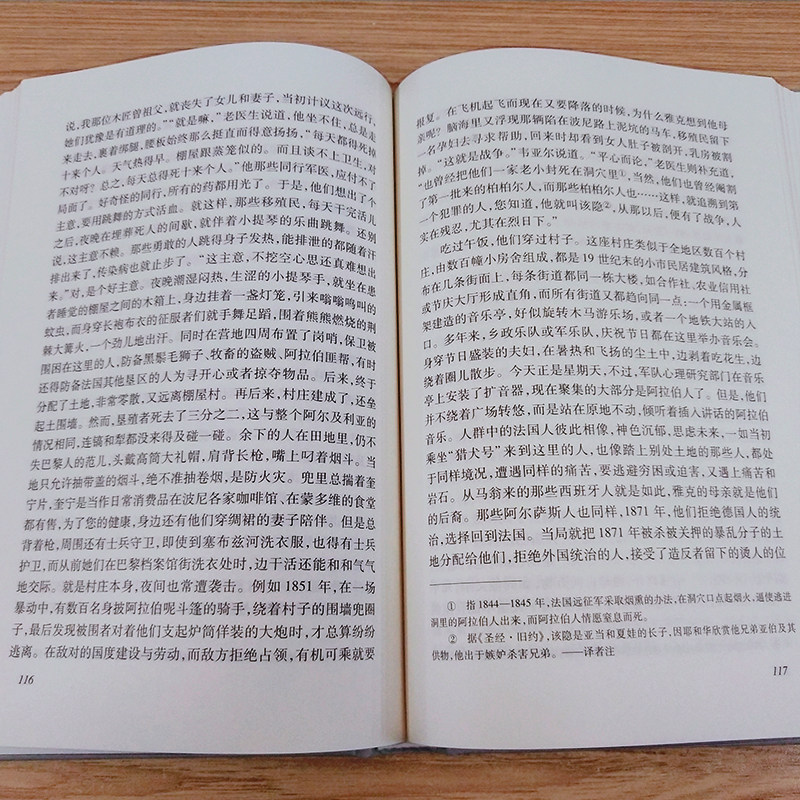 说，我那位木匠曾祖父，就丧失了女儿和妻子，当初计议这次远行，
她们犹豫是有道理的。”“就是嘛，”老医生说道，他坐不住，总是走
来走去，裹着绑腿，腰板始终那么挺直而得意扬扬，“每天都得死掉
十来个人。天气热得早。棚屋跟蒸笼似的。而且谈不上卫生，对
不对呀？总之，每天总得死十来个人。”他那些同行军医，应付不了
局面了。好奇怪的同行，所有的药都用光了。于是，他们想出了个
主意，要用跳舞的方式活血。就这样，那些移殖民，每天干完活儿
之后，夜晚在埋葬死人的间歇，就伴着小提琴的乐曲跳舞。还别
说，这主意不赖。那些勇敢的人跳得身子发热，能排泄的都随着汗
排出来了，传染病也就止步了。“这主意，不挖空心思还真难想出
来。”对，是个好主意。夜晚潮湿闷热，生涩的小提琴手，就坐在患
者睡觉的棚屋之间的木箱上，身边挂着一盏灯笼，引来嗡嗡鸣叫的
蚊虫，而身穿长袍布衣的征服者们就手舞足蹈，围着熊熊燃烧的荆
棘大篝火，一个劲儿地出汗。同时在营地四周布置了岗哨，保卫被
围困在这里的人，防备黑鬃毛狮子、牧畜的盗贼、阿拉伯匪帮，有时
还得防备法国其他垦区的人为寻开心或者掠夺物品。后来，终于
分配了土地，非常零散，又远离棚屋村。再后来，村庄建成了，还垒
起土围墙。然而，垦殖者死去了三分之二，这与整个阿尔及利亚的
情况相同，连镐和犁都没来得及碰一碰。余下的人在田地里，仍不
失巴黎人的范儿，头戴高筒大礼帽，肩背长枪，嘴上叼着烟斗。当
地只允许抽带盖的烟斗，绝不准抽卷烟，是防火灾。兜里总揣着奎
宁片，奎宁是当作日常消费品在波尼各家咖啡馆、在蒙多维的食堂
都有售，为了您的健康，身边还有他们穿绸裙的妻子陪伴。但是总
背着枪，周围还有士兵守卫，即使到塞布兹河洗衣服，也得有士兵
护卫，而从前她们在巴黎档案馆街洗衣处时，边干活还能和和气气
地交际。就是村庄本身，夜间也常遭袭击。例如 1851 年，在一场
暴动中，有数百名身披阿拉伯呢斗篷的骑手，绕着村子的围墙兜圈
子，最后发现被围者对着他们支起炉筒佯装的大炮时，才总算纷纷
逃离。在敌对的国度建设与劳动，而敌方拒绝占领，有机可乘就要
116
报复。在飞机起飞而现在又要降落的时候，为什么雅克想到他母
亲呢？脑海里又浮现那辆陷在波尼路上泥坑的马车，移殖民留下
一名孕妇去寻求帮助，回来时却看到女人肚子被剖开，乳房被割
掉。“这就是战争。”韦亚尔说道。“平心而论，”老医生则补充道，
“也曾经把他们一家老小封死在洞穴里①，当然，他们也曾经阉割
了第一批来的柏柏尔人，而那些柏柏尔人也……这样，就追溯到第
一个犯罪的人，您知道，他就叫该隐②，从那以后，便有了战争，人
实在残忍，尤其在烈日下。”
吃过午饭，他们穿过村子。这座村庄类似于全地区数百个村
庄，由数百幢小房舍组成，都是 19 世纪末的小市民居建筑风格，分
布在几条街面上，每条街道都同一栋大楼，如合作社、农业信用社
或节庆大厅形成直角，而所有街道又都趋向同一点：一个用金属框
架建造的音乐亭，好似旋转木马游乐场，或者一个地铁大站的入
口。多年来，乡政乐队或军乐队，庆祝节日都在这里举办音乐会。
身穿节日盛装的夫妇，在暑热和飞扬的尘土中，边剥着吃花生，边
绕着圈儿散步。今天正是星期天，不过，军队心理研究部门在音乐
亭上安装了扩音器，现在聚集的大部分是阿拉伯人了。但是，他们
并不绕着广场转悠，而是站在原地不动，倾听着插入讲话的阿拉伯
音乐。人群中的法国人彼此相像，神色沉郁，思虑未来，一如当初
乘坐“猎犬号”来到这里的人，也像踏上别处土地的那些人，都处
于同样境况，遭遇同样的痛苦，要逃避穷困或迫害，又遇上痛苦和
岩石。从马翁来的那些西班牙人就是如此，雅克的母亲就是他们
的后裔。那些阿尔萨斯人也同样，1871 年，他们拒绝德国人的统
治，选择回到法国。当局就把 1871 年被杀被关押的暴乱分子的土
地分配给他们，拒绝外国统治的人，接受了造反者留下的烫人的位
① 指 1844—1845 年，法国远征军采取烟熏的办法，在洞穴口点起烟火，逼使逃进
洞里的阿拉伯人出来，而阿拉伯人情愿窒息而死。
② 据《圣经·旧约》，该隐是亚当和夏娃的长子，因耶和华欣赏他兄弟亚伯及其
供物，他出于嫉妒杀害兄弟。——译者注
117